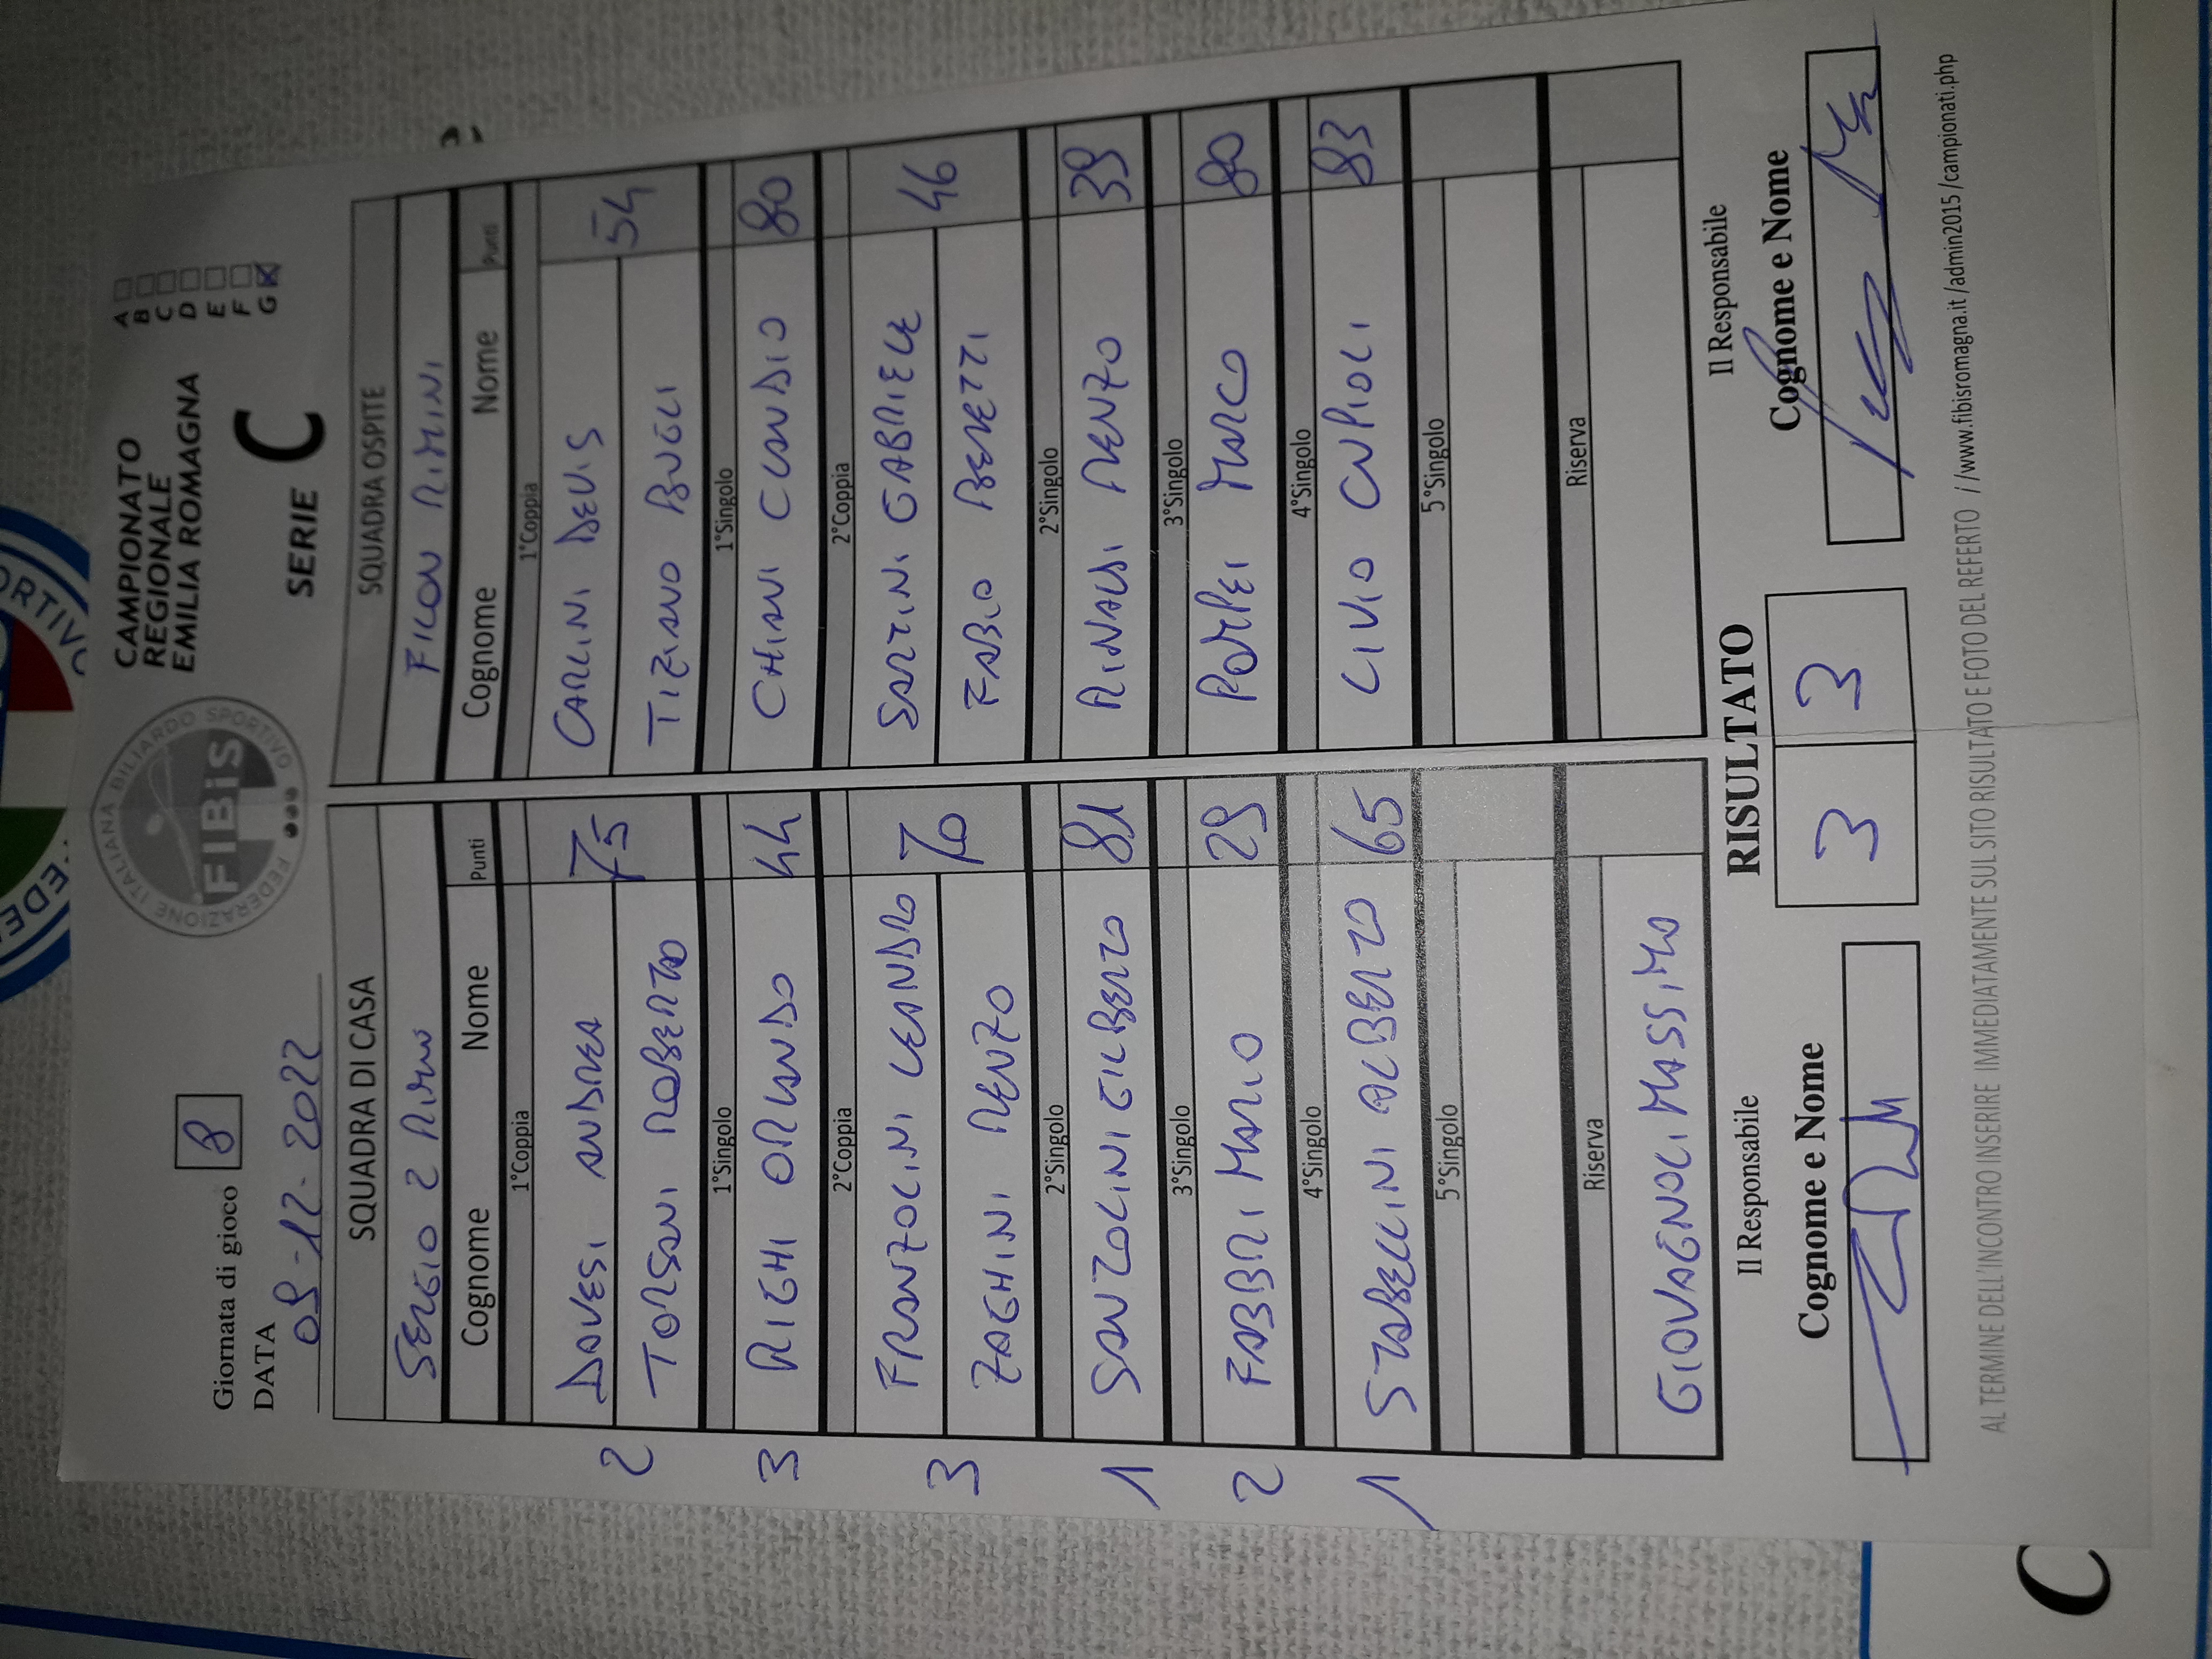 Giornata di gioco 8
DATA
09-12-2022
FEDERAZIONE ITALIANA BILIARDO SPORTIVO
FIBiS
CAMPIONATO
REGIONALE
EMILIA ROMAGNA
SERIE C
A
B
C
D
E
F
G X
SQUADRA DI CASA
SERGIO 2
Cognome Nome Punti
1°Coppia
DAVESI ANDREA 75
TORSANI ROBERTO
1°Singolo
RIGHI ORLANDO 44
2°Coppia
FRANZOLINI LEANDRO 70
ZAGHINI RENZO
2°Singolo
SANZOLINI GILBERTO 81
3°Singolo
FABBRI MARIO 29
4°Singolo
STABELLINI ALBERTO 65
5°Singolo
Riserva
GIOVAGNOLI MASSIMO
2
3
3
1
2
1
SQUADRA OSPITE
FICON RIMINI
Cognome Nome Punti
1°Coppia
CARLINI DEVIS 54
TIZIANO BUGLI
1°Singolo
CHIANI CLAUDIO 80
2°Coppia
SARTINI GABRIELE 46
FABIO BENETTI
2°Singolo
RINALDI RENZO 39
3°Singolo
POMPEI MARCO 80
4°Singolo
LIVIO CUPIOLI 83
5°Singolo
Riserva
Il Responsabile
Cognome e Nome
RISULTATO
3 3
Il Responsabile
Cognome e Nome
AL TERMINE DELL'INCONTRO INSERIRE IMMEDIATAMENTE SUL SITO RISULTATO E FOTO DEL REFERTO //www.fibisromagna.it/admin2015/campionati.php
C